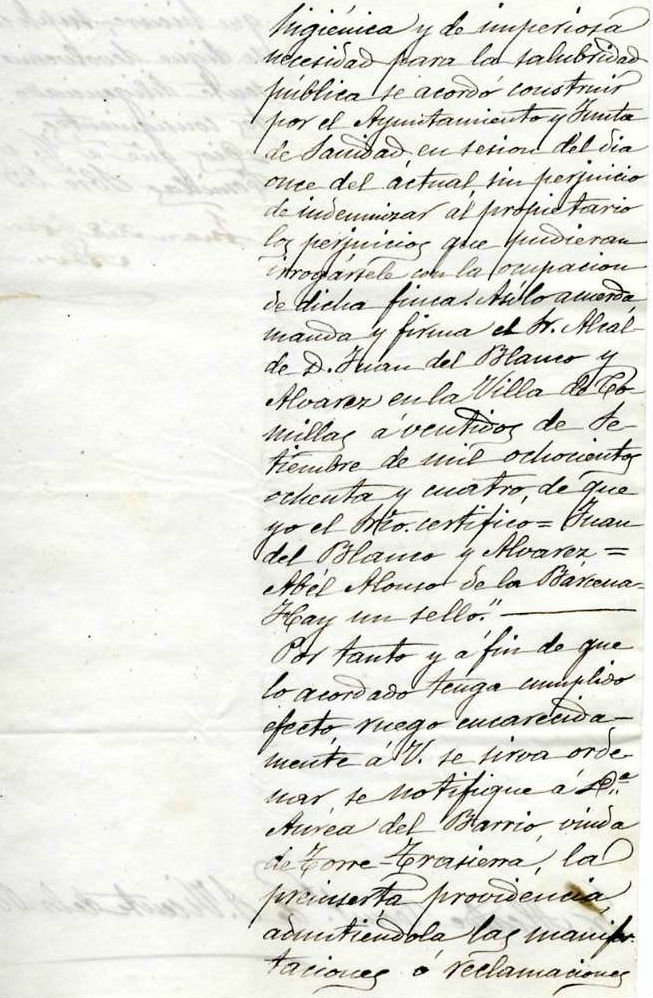 higiénica y de imperiosa
necesidad para la salubridad
pública se acordó construir
por el Ayuntamiento y Junta
de Sanidad, en sesion del dia
once del actual, sin perjuicio
de indemnizar al propietario
los perjuicios que pudieran
irrogársele con la ocupacion
de dicha finca. Así lo acuerda,
manda y firma el Sr. Alcal-
de D. Juan del Blanco y
Alvarez en la Villa de Co-
millas á ventidos de Se-
tiembre de mil ochocientos
ochenta y cuatro, de que
yo el Srio. certifico = Juan
del Blanco y Alvarez =
Abél Alonso de la Bárcena-
Hay un sello."
Por tanto y á fin de que
lo acordado tenga cumplido
efecto ruego encarecida-
mente á V. se sirva orde-
nar, se notifique á D.ª
Aurea del Barrio, viuda
de Torre-Trasierra, la
preinserta providencia,
admitiéndola las manifes-
taciones ó reclamaciones